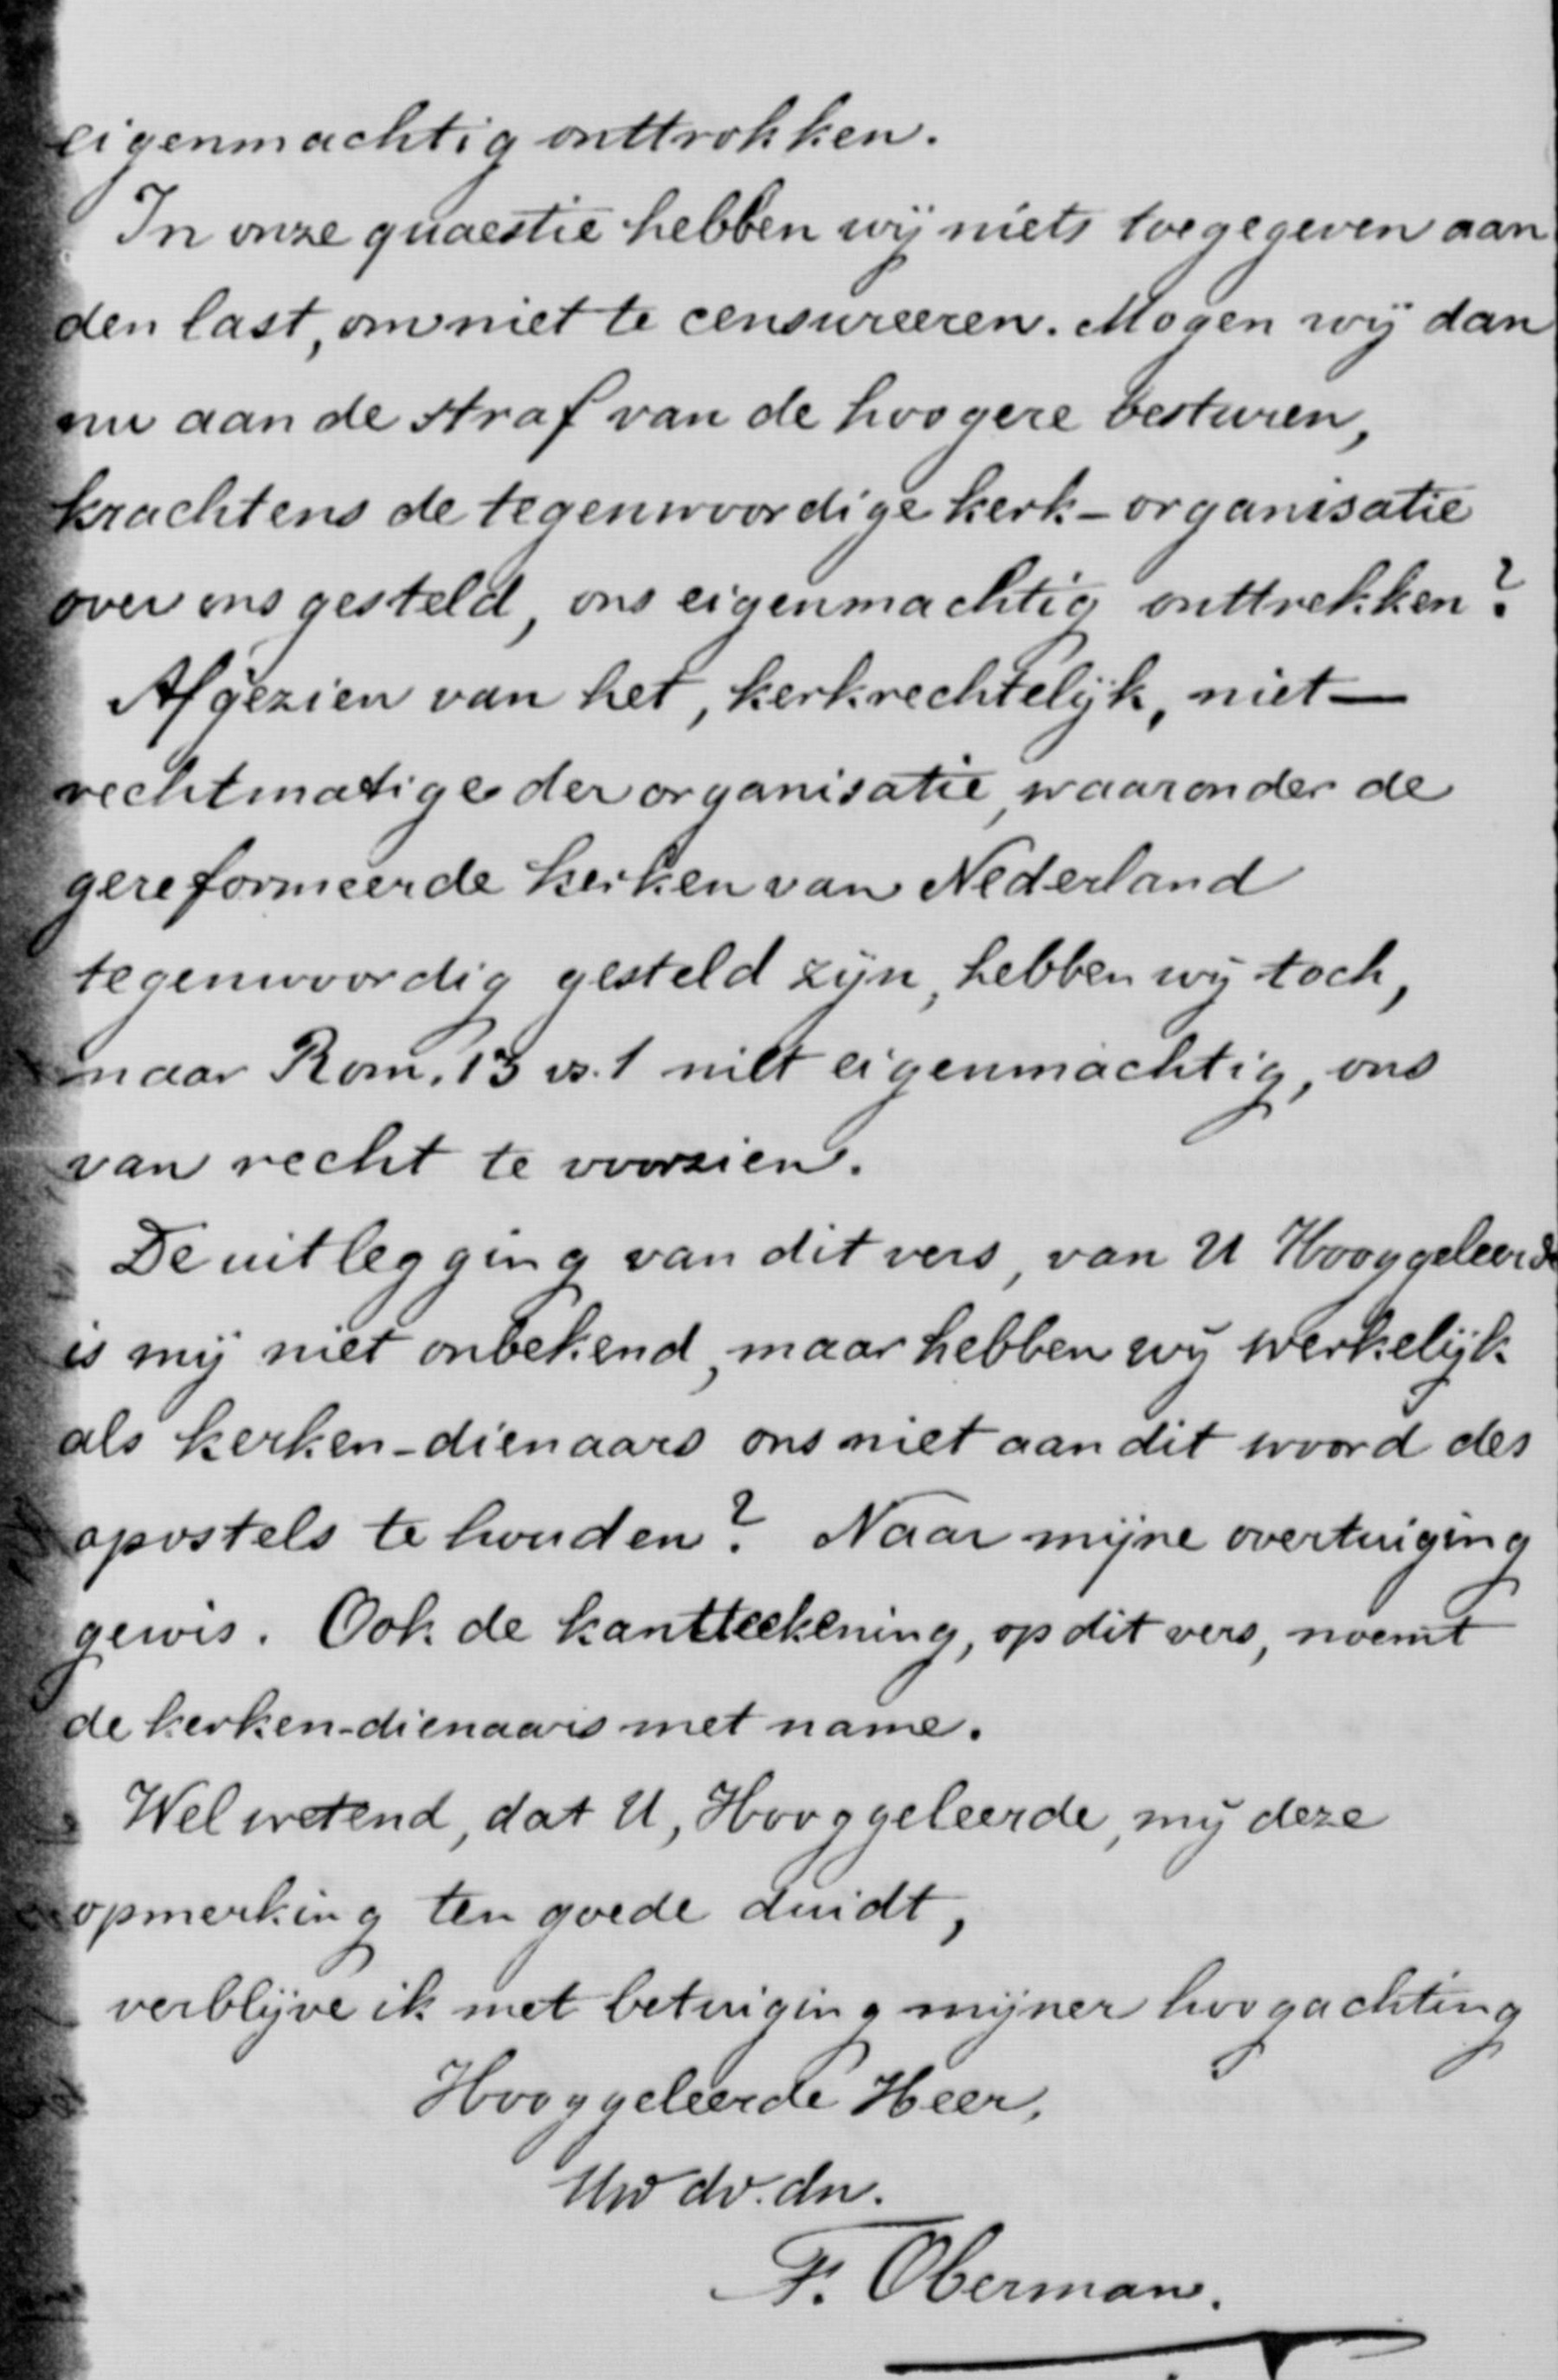 eigenmachtig onttrokken.
In onze quaestie hebben wij niets toegegeven aan
den last, om niet te censureeren. Mogen wij dan
nu aan de straf van de hoogere besturen,
krachtens de tegenwoordige kerk-organisatie
over ons gesteld, ons eigenmachtig onttrekken?
Afgezien van het, kerkrechtelijk, niet—
rechtmatige der organisatie, waaronder de
gereformeerde kerken van Nederland
tegenwoordig gesteld zijn, hebben wij toch,
naar Rom. 13 vs. 1 niet eigenmachtig, ons
van recht te voorzien.
De uitlegging van dit vers, van U Hooggeleerde
is mij niet onbekend, maar hebben wij werkelijk
als kerken-dienaars ons niet aan dit woord des
apostels te houden? Naar mijne overtuiging
gewis. Ook de kantteekening, op dit vers, noemt
de kerken-dienaars met name.
Wel wetend, dat U, Hooggeleerde, mij deze
opmerking ten goede duidt,
verblijve ik met betuiging mijner hoogachting
Hooggeleerde Heer,
Uw dv. dn.
F. Oberman.